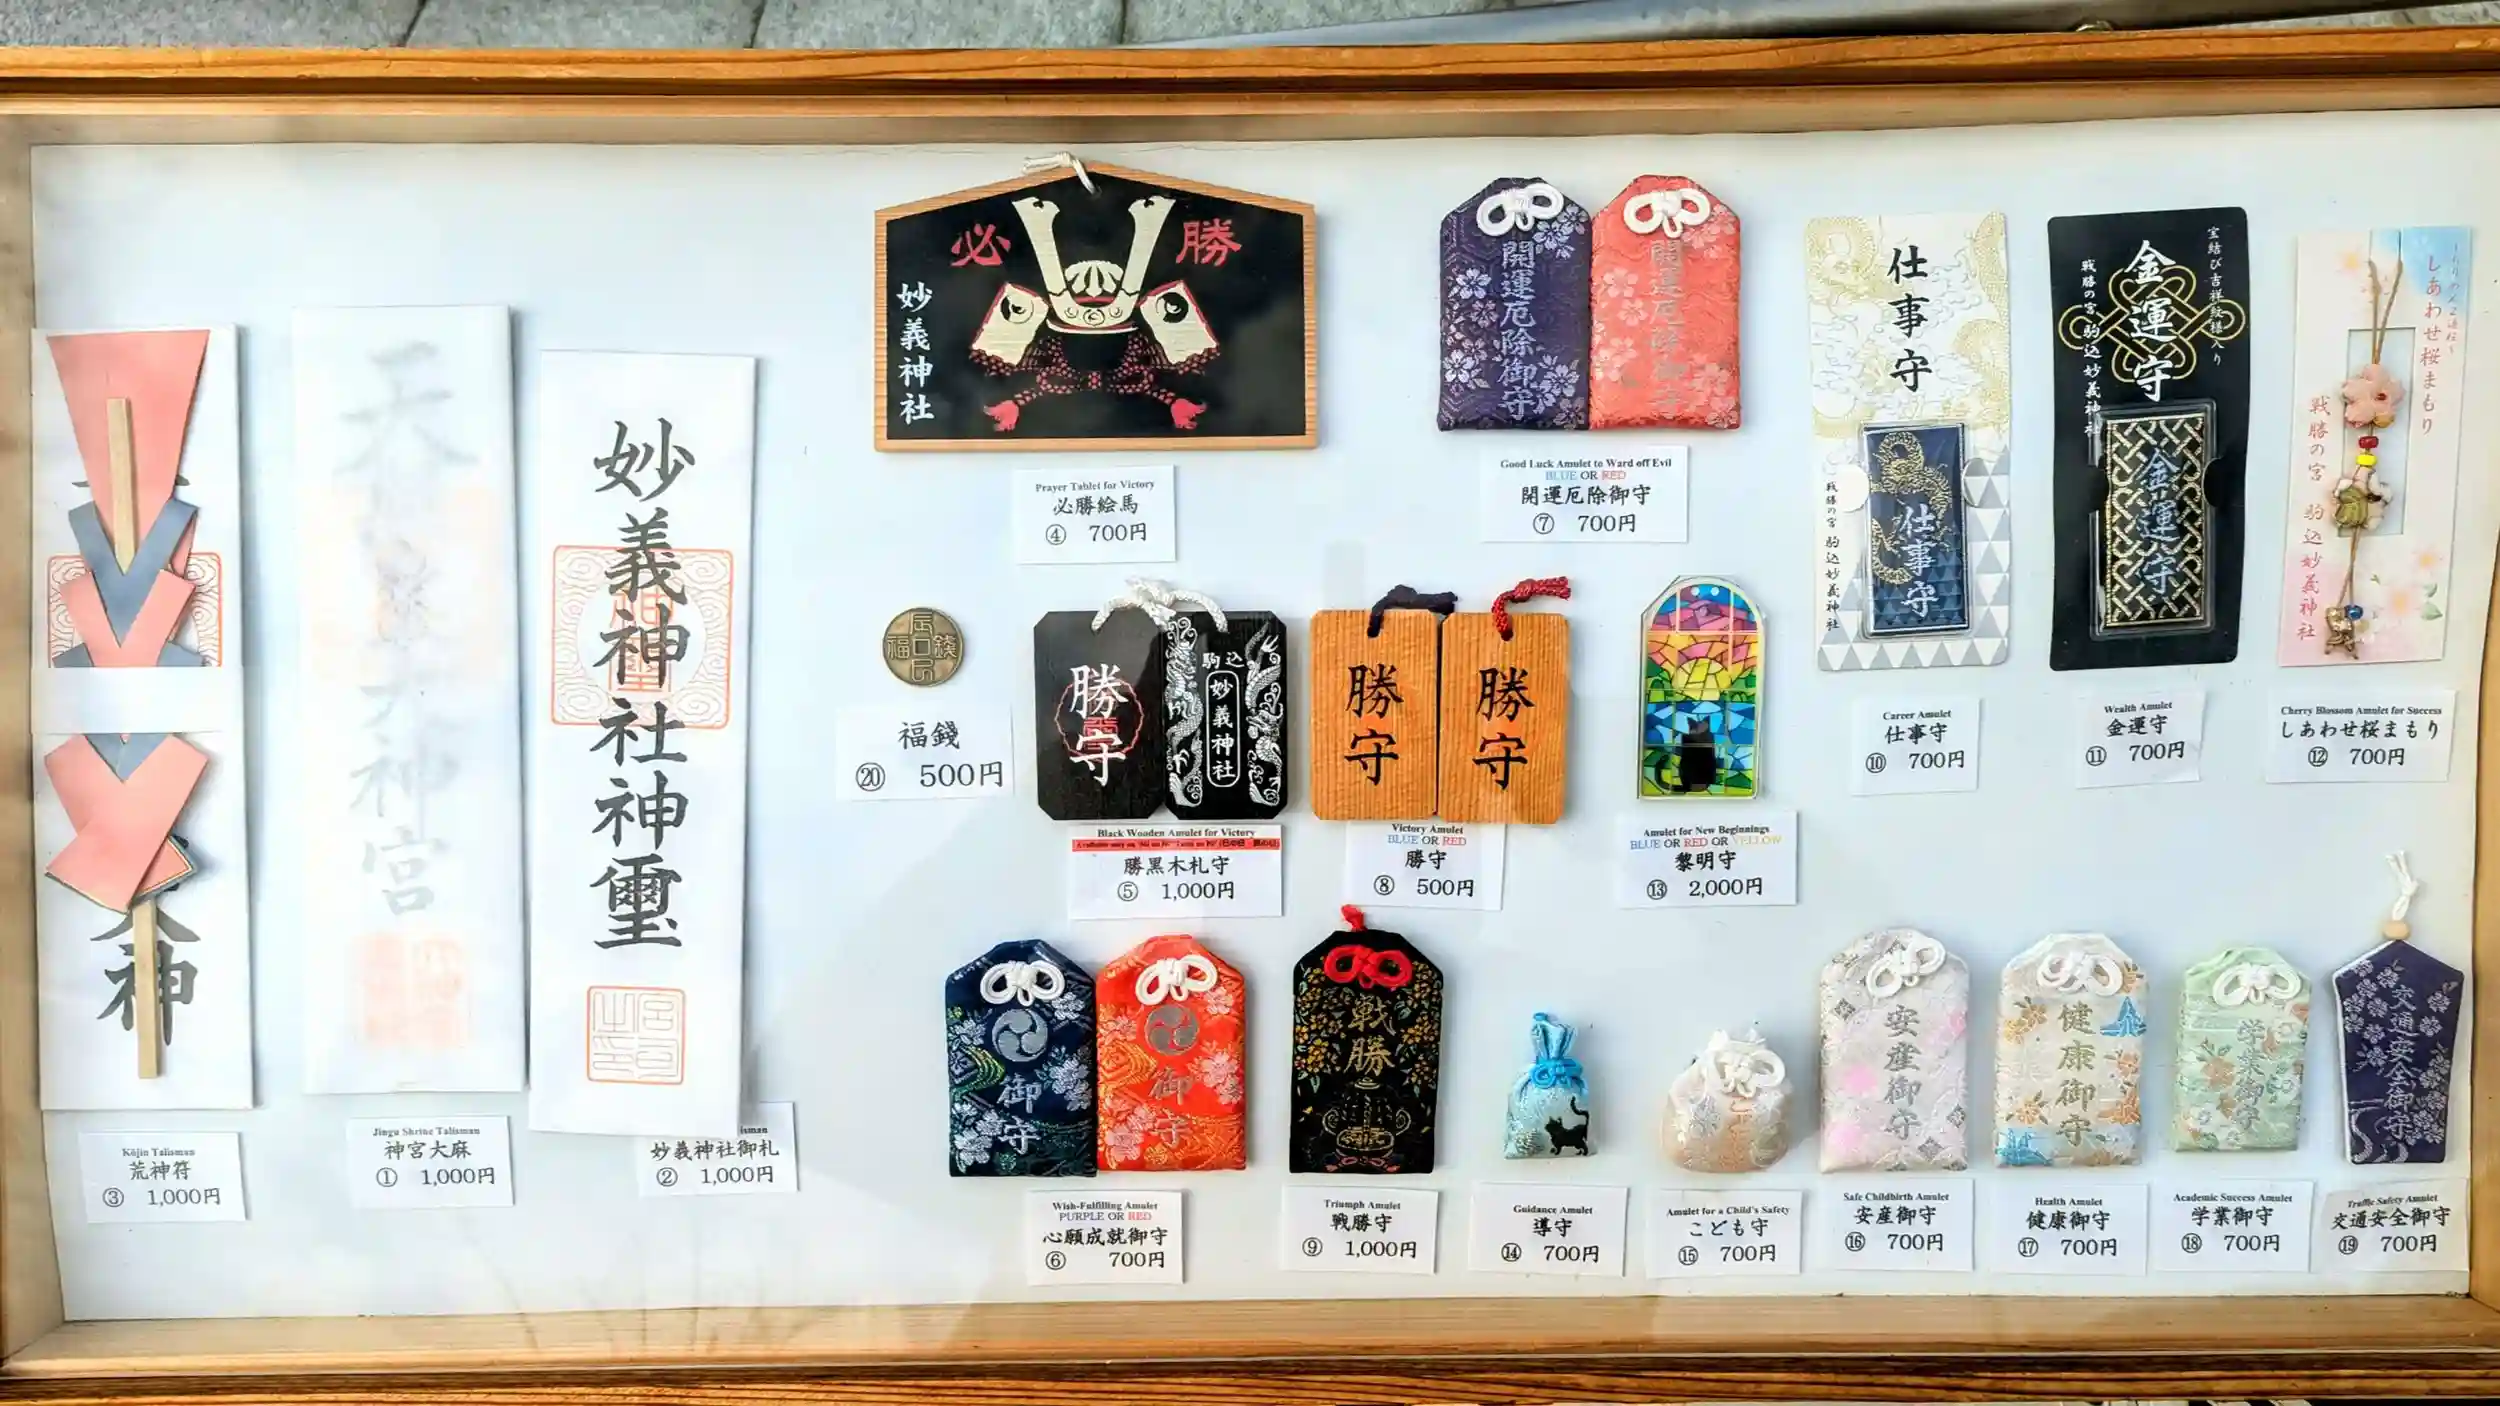 大神
天照皇大神宮
妙義神社神璽
必勝
妙義神社
開運厄除御守
開運厄除御守
仕事守
仕事守
戦勝の宮 駒込妙義神社
宝結び吉祥紋様入り
金運守
戦勝の宮 駒込妙義神社
金運守
しあわせ桜まもり
戦勝の宮 駒込妙義神社
Prayer Tablet for Victory
必勝絵馬
④ 700円
Good Luck Amulet to Ward off Evil
BLUE OR RED
開運厄除御守
⑦ 700円
福錢
⑳ 500円
勝守
駒込
妙義神社
勝守
勝守
Black Wooden Amulet for Victory
勝黒木札守
⑤ 1,000円
Victory Amulet
BLUE OR RED
勝守
⑧ 500円
Amulet for New Beginnings
BLUE OR RED OR YELLOW
黎明守
⑬ 2,000円
Career Amulet
仕事守
⑩ 700円
Wealth Amulet
金運守
⑪ 700円
Cherry Blossom Amulet for Success
しあわせ桜まもり
⑫ 700円
御守
御守
戦勝
安産御守
健康御守
学業御守
交通安全御守
Kōjin Talisman
荒神符
③ 1,000円
Jingu Shrine Talisman
神宮大麻
① 1,000円
妙義神社御札
② 1,000円
Wish-Fulfilling Amulet
PURPLE OR RED
心願成就御守
⑥ 700円
Triumph Amulet
戦勝守
⑨ 1,000円
Guidance Amulet
導守
⑭ 700円
Amulet for a Child's Safety
こども守
⑮ 700円
Safe Childbirth Amulet
安産御守
⑯ 700円
Health Amulet
健康御守
⑰ 700円
Academic Success Amulet
学業御守
⑱ 700円
Traffic Safety Amulet
交通安全御守
⑲ 700円